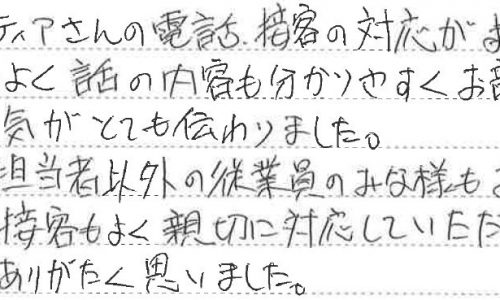 ティアさんの電話、接客の対応が
よく話の内容も分かりやすくお
気がとても伝わりました。
担当者以外の従業員のみな様も
接客もよく親切に対応していただ
ありがたく思いました。